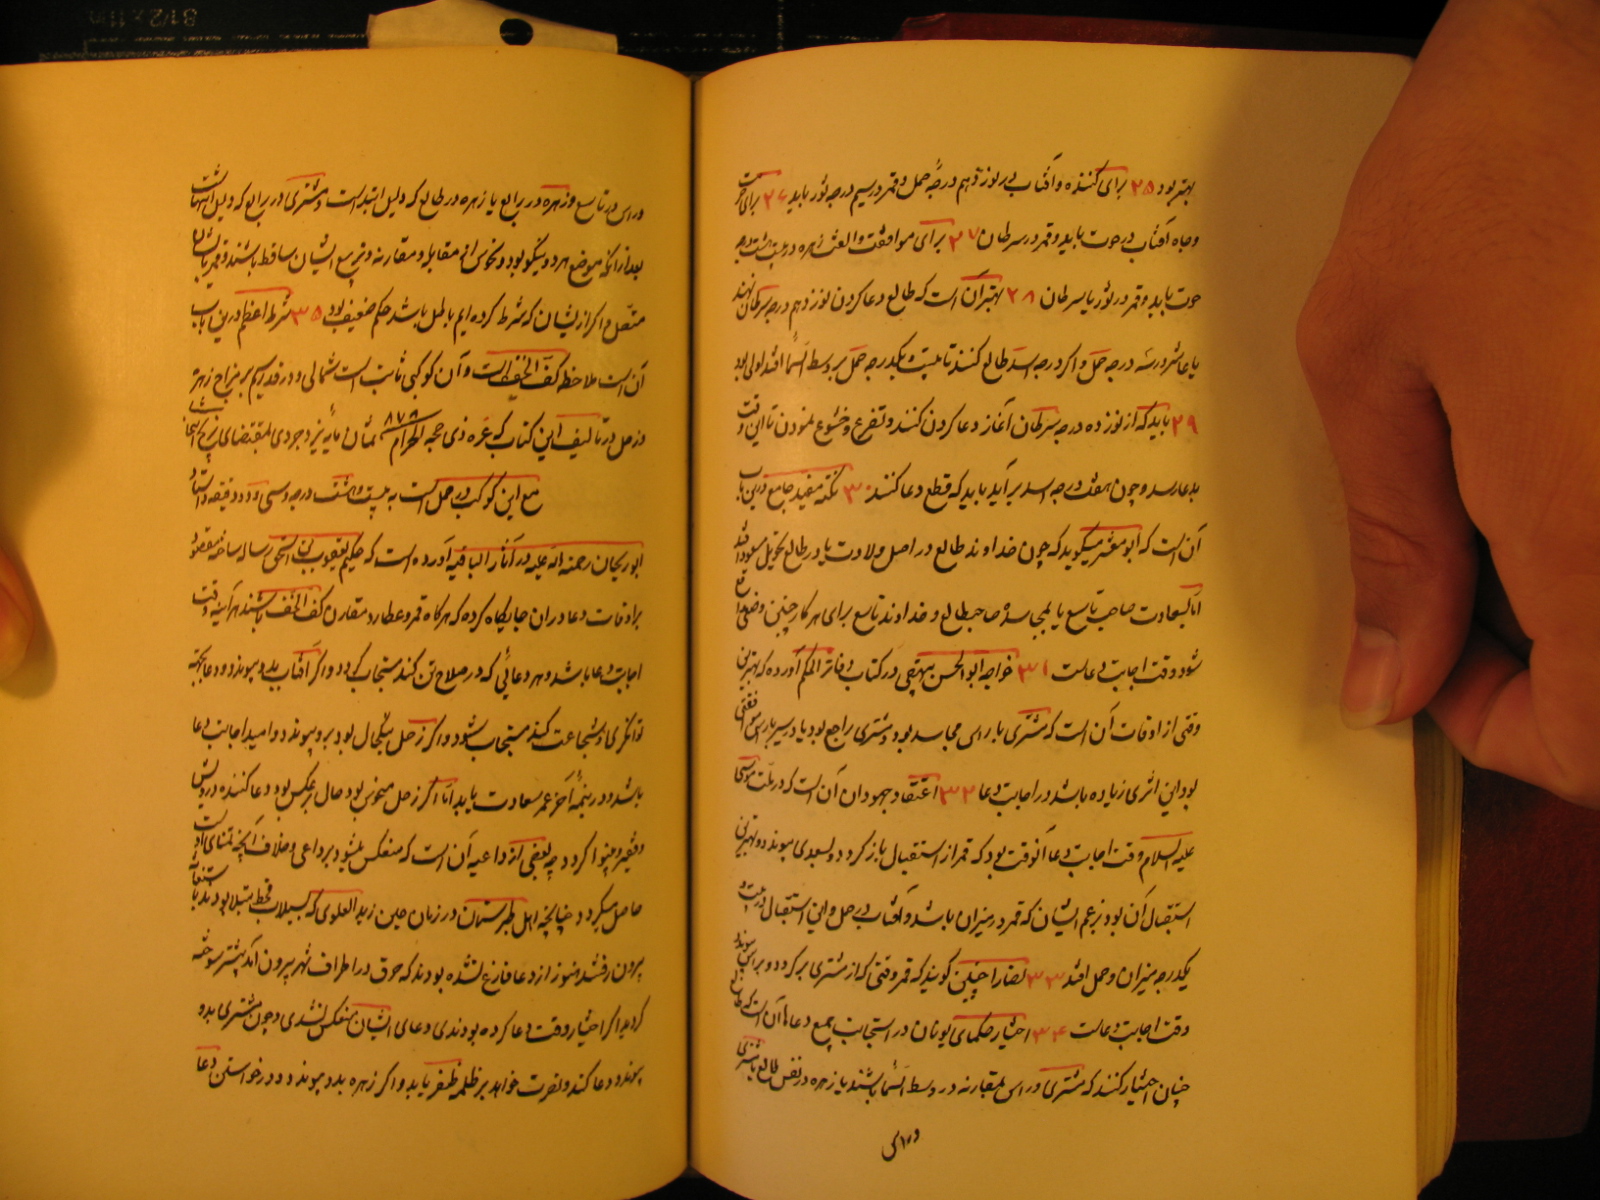 بهتر بود ۲۵ برای کننده و آفتاب در نوزدهم درجه حمل و قمر در سیم درجه ثور باید ۲۶ برای
وجاه آفتاب در حوت باید و قمر در سرطان ۲۷ برای موافقت و الفت زهره در بیست
حوت باید و قمر در ثور یا سرطان ۲۸ بهتر آن است که طالع دعا کردن نوزدهم درجه سرطان نهند
یا عاشر درسه درجه حمل و اگر درجه اسد طالع کنند تا بیست و یکدرجه حمل بر وسط السما افتد اولی بود
۲۹ باید که از نوزده درجه سرطان آغاز دعا کردن کنند و تضرع و خشوع نمودن تا این وقت
بدعا رسد و چون هفت درجه اسد برآید باید که قطع دعا کنند ۳۰ نکته مفید جامع درین باب
آن است که ابو معشر میگوید که چون خداوند طالع در اصل ولادت یا در طالع تحویل مسعود افتد
اما بسعادت صاحب تاسع یا بمجاسده صاحب طالع و خداوند تاسع برای هر کار چنین وضعی
شود وقت اجابت دعاست ۳۱ خواجه ابو الحسن بیهقی در کتاب آورده که بهترین
وقتی از اوقات آن است که مشتری با راس مجاسد بود و مشتری راجع بود یا در سیر با راس موافقتی
بود این اثری زیاده باشد در اجابت دعا ۳۲ اعتقاد جهودان آن است که در ملت موسی
علیه السلام وقت اجابت دعا آنوقت بود که قمر از استقبال باز گردد و بسعدی پیوندد و بهترین
استقبال آن بود بزعم ایشان که قمر در میزان باشد و آفتاب در حمل و این استقبال در بیست و
یکدرجه میزان و حمل افتد ۳۳ نصارا چنین گویند که قمر وقتی که از مشتری برگردد و براس پیوندد
وقت اجابت دعاست ۳۴ اختیار حکمای یونان در استجابت جمیع دعاها آن است که
چنان اختیار کنند که مشتری و راس بمقارنه در وسط السما باشند یا زهره در نفس طالع یا مشتری
و راس
و راس در تاسع و زهره در رابع یا زهره در طالع که دلیل ابتداست و مشتری در رابع که دلیل انتهاست
بعد از آنکه موضع هر دو نیکو بود و نحوس از مقابله و مقارنه و تربیع ایشان ساقط باشند و قمر
متصل و اگر ازیشان که شرط کرده ایم باطل باشد حکم ضعیف بود ۳۵ شرط اعظم درین باب
آن است ملاحظه کف الخضیب است و آن کوکبی ثابت است شمالی و در قدر سیم بر مزاج زهره
و زحل در تالیف این کتاب که غره ذی حجه الحرام ۸۷۸
مع این کوکب در حمل است به بیست و هشت درجه و سی و دو دقیقه
ابوریحان رحمة الله علیه در آثار الباقیه آورده است که حکیم یعقوب بن اسحق رساله ساخته مقصود
بر اوقات دعا در آن جایگاه کرده که هر گاه قمر و عطارد مقارن کف الخضیب باشند هر آینه وقت
اجابت دعا باشد و هر دعائی که در صلاح تن کنند مستجاب گردد و اگر آفتاب بدو پیوندد و دعا بجهة
توانگری و شجاعت کنند مستجاب شود و اگر زحل نیکحال بود برو پیوندد و امید اجابت دعا
باشد و در نیمه آخر عمر سعادت یابد اما اگر زحل منحوس بود حال بر عکس بود دعا کننده درویش
و فقیر و بینوا گردد چه بعضی از داعیه آن است که منعکس میشود بر داعی و خلاف آنچه تمنای اوست
حاصل میگردد چنانچه اهل طبرستان در زمان حسن زید العلوی که بسبلاب قحط مبتلا بودند
بیرون رفتند هنوز از دعا فارغ نشده بودند که حرق در اطراف شهر بیرون آمد بیشتر سوخته
گردید اگر اختیار وقت دعا کرده بودندی دعای ایشان منعکس نشدی و چون مشتری بدو
پیوندد و دعا کند و نصرت خواهد بر ظلمه ظفر یابد و اگر زهره بدو پیوندد و در خواستن دعا